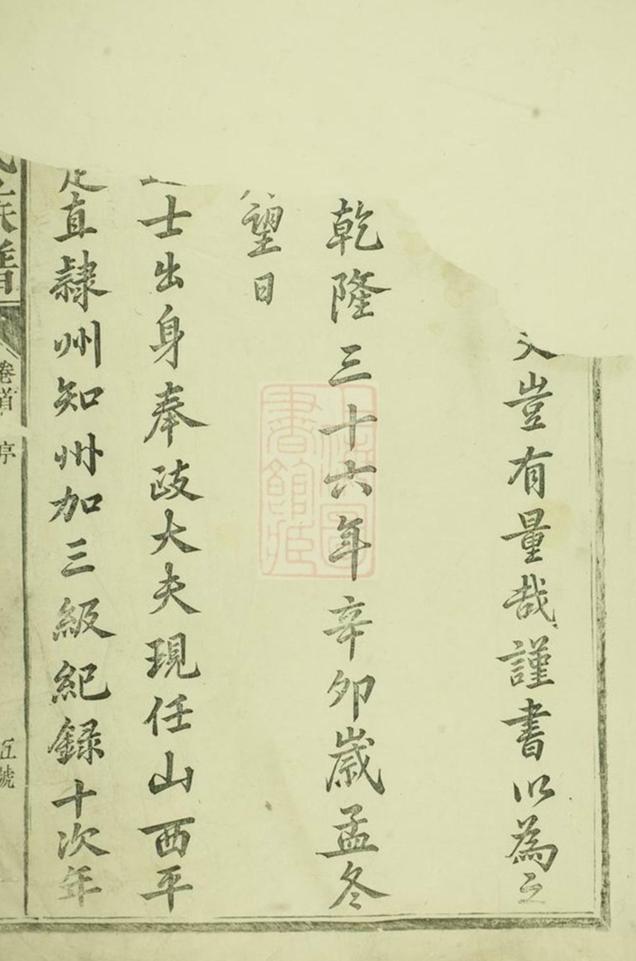 豈有量哉謹書以為之
乾隆三十六年辛卯歲孟冬
望日
士出身奉政大夫現任山西平
定直隸州知州加三級紀錄十次年
族譜
卷首
序
五號
書館
圖